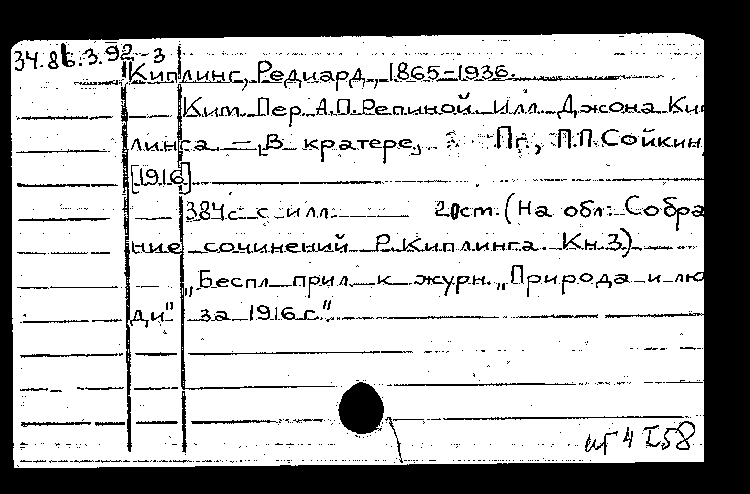 34.86.3.92-3
Киплинг, Редиард, 1865-1936.
Ким. Пер. А.П.Репиной. Илл. Джона Ки
линга. — В кратере, Пг., П.П.Сойкин,
[1916]
384с. с илл. 20см. (На обл: Собра
ние сочинений Р.Киплинга. Кн.3.)
„Беспл. прил. к журн. „Природа и лю
ди" за 1916 г."